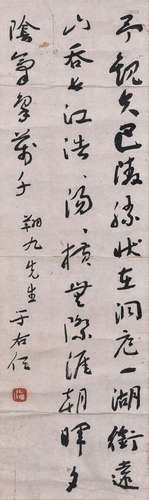 予觀夫巴陵勝狀在洞庭一湖銜遠
山吞長江浩々湯々橫無際涯朝暉夕
陰氣象萬千 翔九先生 于右任